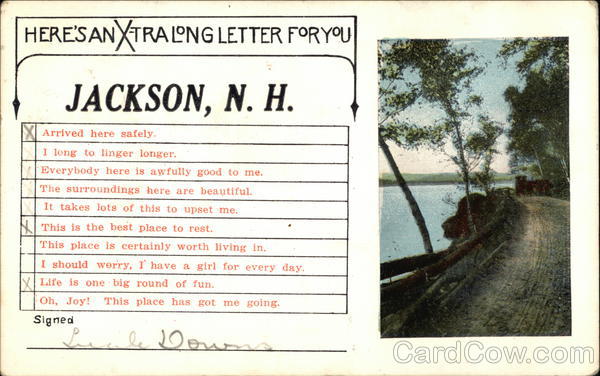 HERE'S AN X-TRA LONG LETTER FOR YOU
JACKSON, N. H.
X Arrived here safely.
I long to linger longer.
Everybody here is awfully good to me.
The surroundings here are beautiful.
It takes lots of this to upset me.
X This is the best place to rest.
This place is certainly worth living in.
I should worry, I have a girl for every day.
X Life is one big round of fun.
Oh, Joy! This place has got me going.
Signed
Downs
CardCow.com